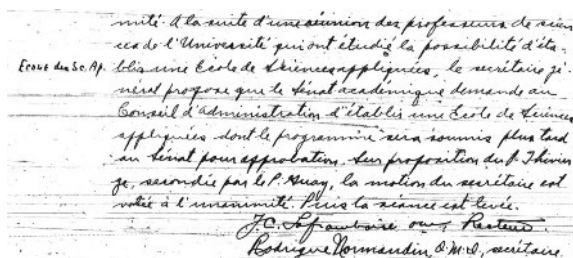 nimité. A la suite d'une réunion des professeurs de scien
ces de l'Université qui ont étudié la possibilité d'éta-
Ecole des Sc. Ap.
blir une Ecole de Sciences appliquées, le secrétaire gé-
néral propose que le Sénat académique demande au
Conseil d'administration d'établir une Ecole de Sciences
appliquées dont le programme sera soumis plus tard
au Sénat pour approbation. Sur proposition du P. Thivier
ge, secondée par le P. Guay, la motion du secrétaire est
votée à l'unanimité. Puis la séance est levée.
J.C. Laframboise o.m.i. Recteur.
Rodrigue Normandin, O.M.I., secrétaire.